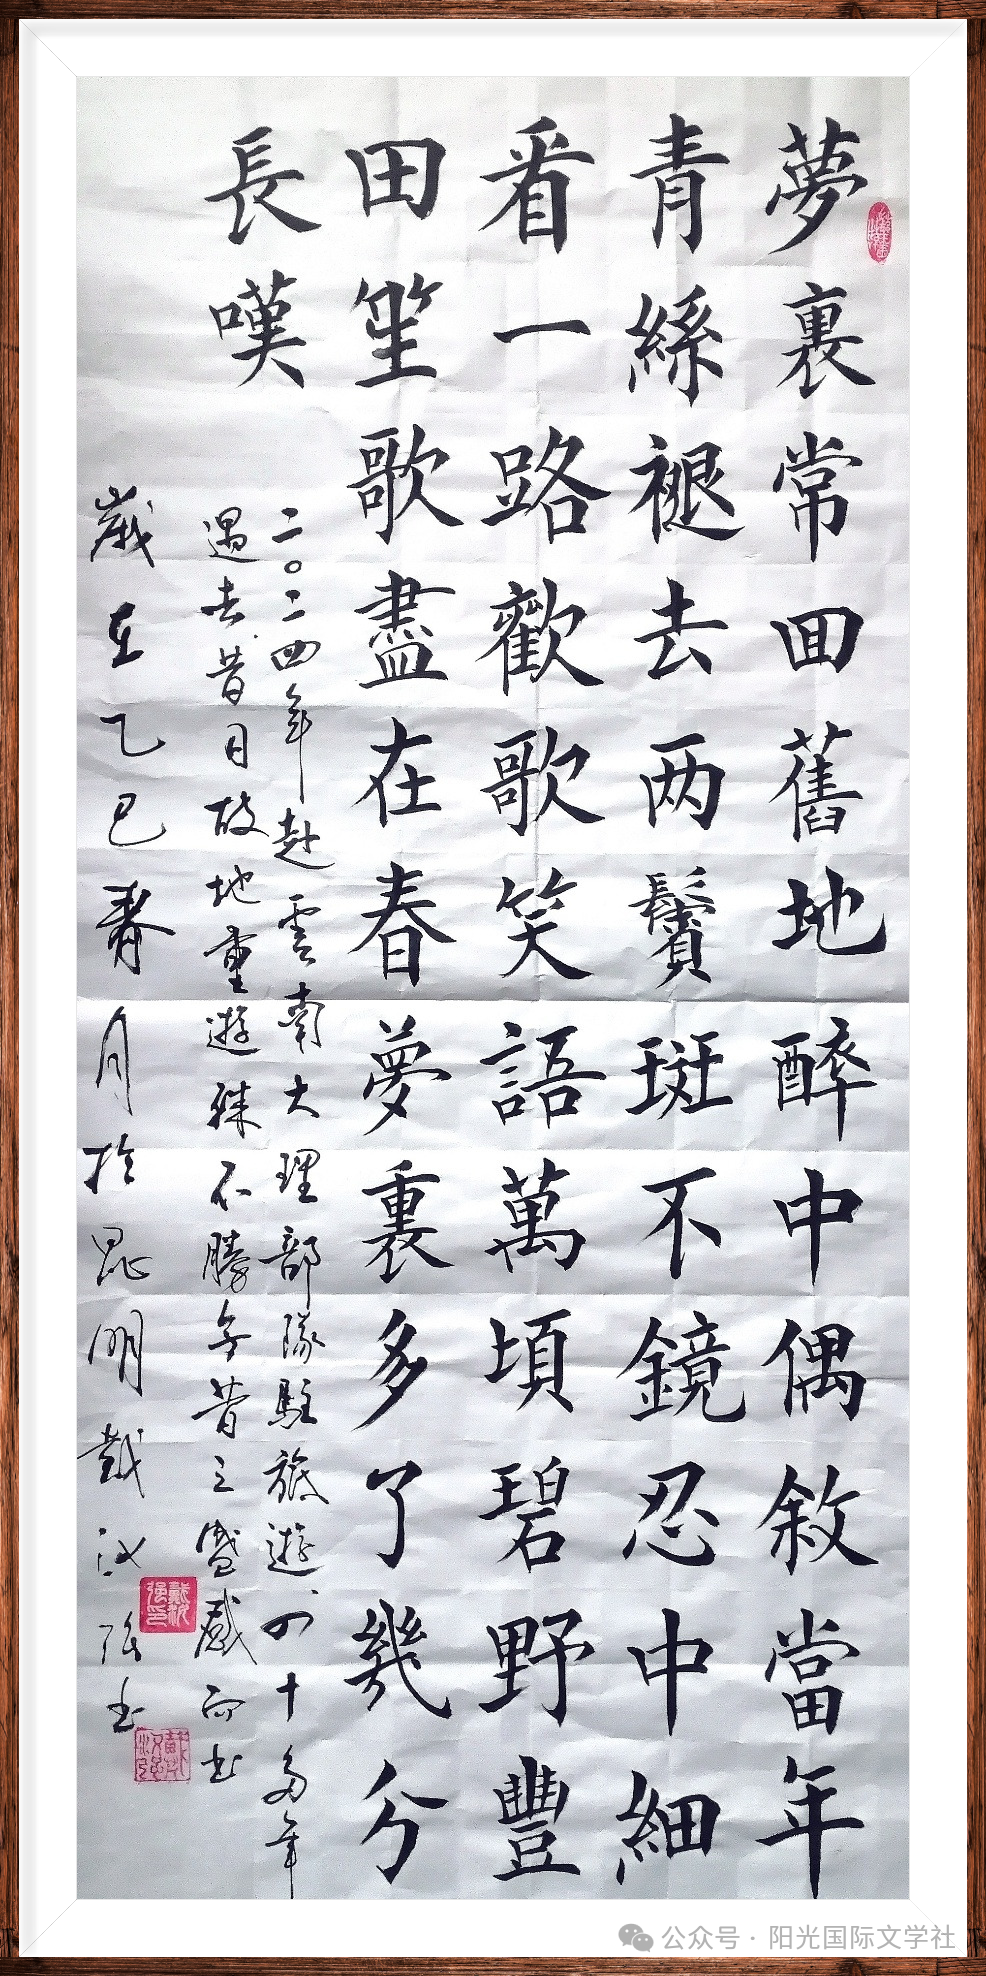 夢裏常囬舊地醉中偶敘當年
青絲褪去两鬢斑不鏡忍中細
看一路歡歌笑語萬頃碧野豐
田笙歌盡在春夢裏多了幾分
長嘆
二〇二四年赴雲南大理部隊駐旅遊、四十多年
過去昔日故地重遊殊不勝今昔之盛感而書
歲在乙巳春月於昆明戴汉强書
公众号 · 阳光国际文学社